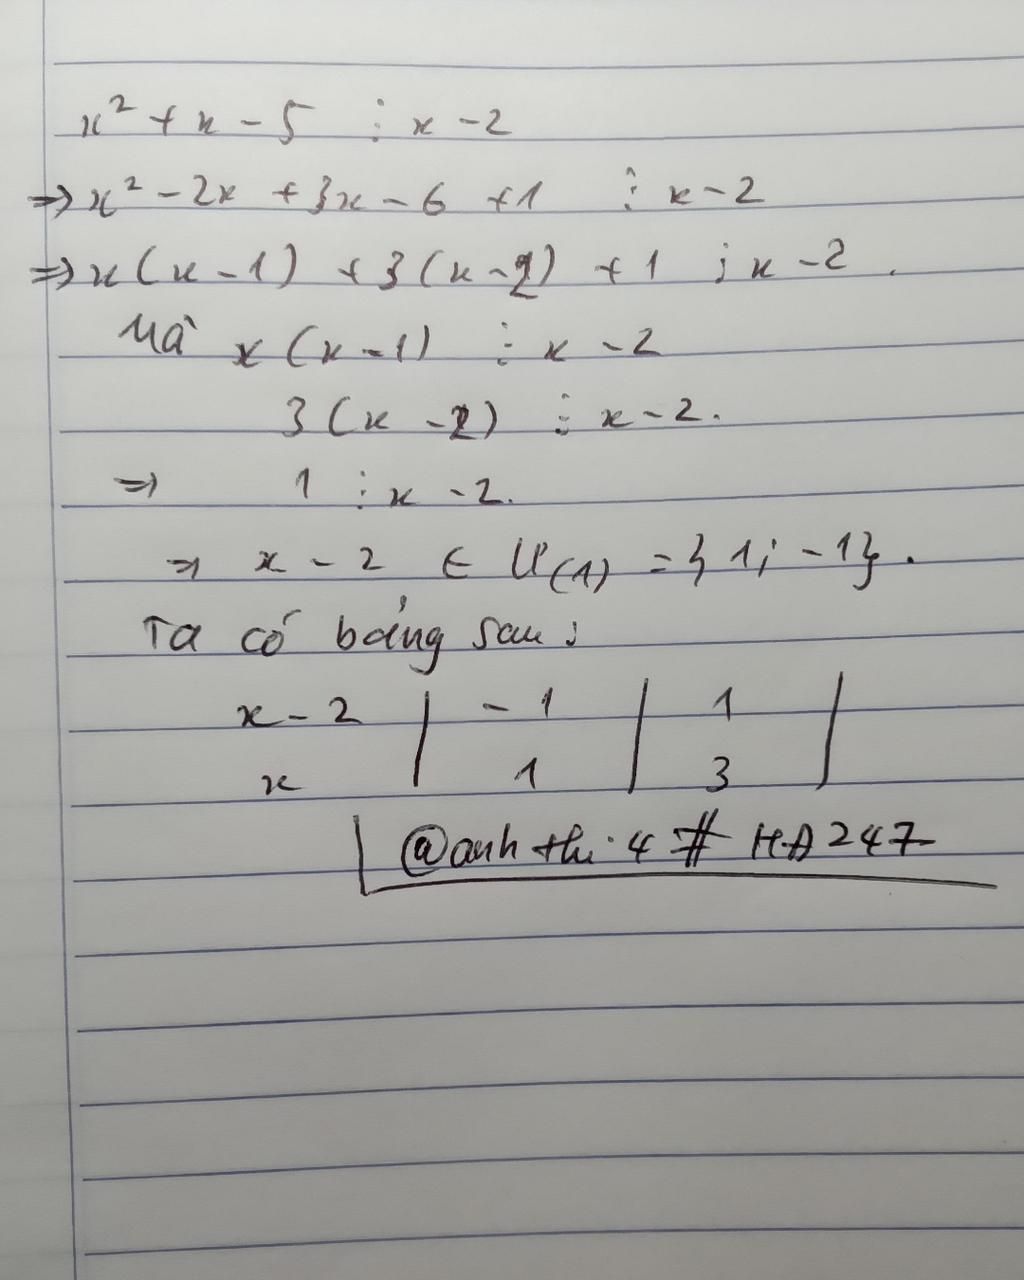 x² + x - 5 ⋮ x - 2
=> x² - 2x + 3x - 6 + 1 ⋮ x - 2
=> x(x - 1) + 3(x - 2) + 1 ⋮ x - 2.
Mà x(x - 1) ⋮ x - 2
3(x - 2) ⋮ x - 2.
=> 1 ⋮ x - 2.
=> x - 2 ∈ Ư(1) = {1; -1}.
Ta có bảng sau:
x - 2 | - 1 | 1 |
x | 1 | 3 |
@anh thi.4 # HA247